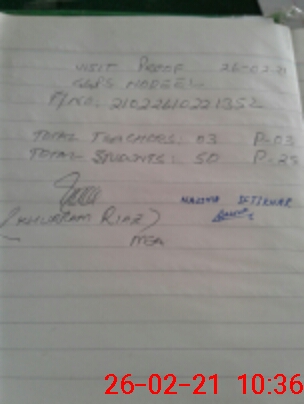 VISIT PROOF 26-02-21
GGPS NODEEL
P/NO. 21022610221352
TOTAL TEACHERS: 03 P-03
TOTAL STUDENTS: 50 P-25
(KHURRAM RIAZ)
MEA
IFTIKHAR
26-02-21 10:36